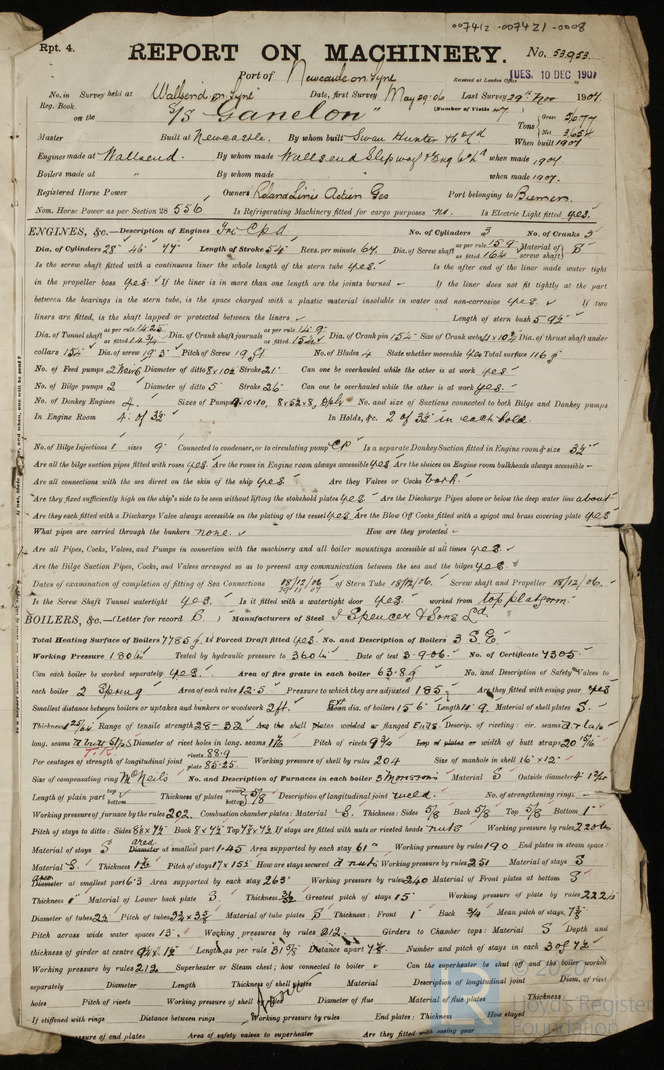 007412-007421-0008
Rpt. 4.
REPORT ON MACHINERY.
No. 53953
Port of Newcastle on Tyne
Received at London Office TUES. 10 DEC 1907
No. in Survey held at Wallsend on Tyne Date, first Survey May 29.06 Last Survey 29th Nov 1907
Reg. Book. (Number of Visits 47
on the S/S "Ganelon" Tons Gross 5677 Net 3654
Master Built at Newcastle. By whom built Swan Hunter & Co Ld When built 1907
Engines made at Wallsend. By whom made Wallsend Slipway & Eng Co Ld when made 1907.
Boilers made at " By whom made when made 1907.
Registered Horse Power Owners Roland Linie Actien Ges Port belonging to Bremen.
Nom. Horse Power as per Section 28 556 Is Refrigerating Machinery fitted for cargo purposes no. Is Electric Light fitted yes.
ENGINES, &c.—Description of Engines Tri-Cpd No. of Cylinders 3 No. of Cranks 3
Dia. of Cylinders 28" 46" 77" Length of Stroke 54" Revs. per minute 64 Dia. of Screw shaft as per rule 15.9 as fitted 16¼ Material of screw shaft
Is the screw shaft fitted with a continuous liner the whole length of the stern tube yes. Is the after end of the liner made water tight
in the propeller boss yes. If the liner is in more than one length are the joints burned — If the liner does not fit tightly at the part
between the bearings in the stern tube, is the space charged with a plastic material insoluble in water and non-corrosive yes If two
liners are fitted, is the shaft lapped or protected between the liners Length of stern bush 5' 9½"
Dia. of Tunnel shaft as per rule 14.25 as fitted 14¾ Dia. of Crank shaft journals as per rule 14.9 as fitted 15¼ Dia. of Crank pin 15¼" Size of Crank webs Dia. of thrust shaft under
collars 15¼" Dia. of screw 19' 3" Pitch of Screw 19 ft No. of Blades 4 State whether moveable yes Total surface 116
No. of Feed pumps 2 Diameter of ditto Stroke 21" Can one be overhauled while the other is at work yes.
No. of Bilge pumps 2 Diameter of ditto 5" Stroke 26" Can one be overhauled while the other is at work yes.
No. of Donkey Engines 4. Sizes of Pumps No. and size of Suctions connected to both Bilge and Donkey pumps
In Engine Room 4 of 3½" In Holds, &c. 2 of 3½" in each hold
No. of Bilge Injections 1 sizes 9" Connected to condenser, or to circulating pump CP Is a separate Donkey Suction fitted in Engine room & size 3½"
Are all the bilge suction pipes fitted with roses yes. Are the roses in Engine room always accessible yes Are the sluices on Engine room bulkheads always accessible —
Are all connections with the sea direct on the skin of the ship yes Are they Valves or Cocks both.
Are they fixed sufficiently high on the ship's side to be seen without lifting the stokehold plates yes. Are the Discharge Pipes above or below the deep water line about
Are they each fitted with a Discharge Valve always accessible on the plating of the vessel yes. Are the Blow Off Cocks fitted with a spigot and brass covering plate yes
What pipes are carried through the bunkers none. How are they protected —
Are all Pipes, Cocks, Valves, and Pumps in connection with the machinery and all boiler mountings accessible at all times yes.
Are the Bilge Suction Pipes, Cocks, and Valves arranged so as to prevent any communication between the sea and the bilges yes
Dates of examination of completion of fitting of Sea Connections 18/12/06 29/11/07 of Stern Tube 18/12/06. Screw shaft and Propeller 18/12/06.
Is the Screw Shaft Tunnel watertight yes. Is it fitted with a watertight door yes. worked from top platform.
BOILERS, &c.—(Letter for record ) Manufacturers of Steel J Spencer & Sons Ld
Total Heating Surface of Boilers 7785 Is Forced Draft fitted yes. No. and Description of Boilers 3 S.E.
Working Pressure 180 lb Tested by hydraulic pressure to 360 lb Date of test 3.9.06. No. of Certificate 7305.
Can each boiler be worked separately yes. Area of fire grate in each boiler 63.8 No. and Description of Safety Valves to
each boiler 2 Spring Area of each valve 12.5 Pressure to which they are adjusted 185 Are they fitted with easing gear yes
Smallest distance between boilers or uptakes and bunkers or woodwork 2 ft. dia. of boilers 15' 6" Length 11' 9" Material of shell plates S.
Thickness Range of tensile strength 28-32 Are the shell plates welded or flanged Ends. Descrip. of riveting: cir. seams
long. seams Diameter of rivet holes in long. seams Pitch of rivets 9¾ Lap of plates or width of butt straps 20 15/16
Per centages of strength of longitudinal joint rivets 88.9 plate 85.25 Working pressure of shell by rules 204 Size of manhole in shell 16" x 12"
Size of compensating ring McNeils No. and Description of Furnaces in each boiler 3 Morisons Material S Outside diameter
Length of plain part top bottom Thickness of plates crown bottom 5/8 Description of longitudinal joint weld. No. of strengthening rings —
Working pressure of furnace by the rules 202. Combustion chamber plates: Material S. Thickness: Sides 5/8 Back 5/8 Top 5/8 Bottom 1"
Pitch of stays to ditto: Sides Back Top If stays are fitted with nuts or riveted heads nuts Working pressure by rules 220 lb
Material of stays S area Diameter at smallest part 1.45 Area supported by each stay 61" Working pressure by rules 190 End plates in steam space:
Material S. Thickness Pitch of stays How are stays secured d nuts Working pressure by rules 251 Material of stays S
area Diameter at smallest part 6.3 Area supported by each stay 263 Working pressure by rules 240 Material of Front plates at bottom S
Thickness 1" Material of Lower back plate S. Thickness Greatest pitch of stays 15" Working pressure of plate by rules
Diameter of tubes Pitch of tubes Material of tube plates S Thickness: Front 1" Back ¾ Mean pitch of stays
Pitch across wide water spaces 13". Working pressures by rules 212 Girders to Chamber tops: Material S Depth and
thickness of girder at centre Length as per rule 31 5/8 Distance apart Number and pitch of stays in each 3 of 7½
Working pressure by rules 212 Superheater or Steam chest; how connected to boiler Can the superheater be shut off and the boiler worked
separately Diameter Length Thickness of shell plates Material Description of longitudinal joint Diam. of rivet
holes Pitch of rivets Working pressure of shell by rules Diameter of flue Material of flue plates Thickness
None
If stiffened with rings Distance between rings Working pressure by rules End plates: Thickness How stayed
pressure of end plates Area of safety valves to superheater Are they fitted with easing gear
© 2020
Lloyd's Register
Foundation